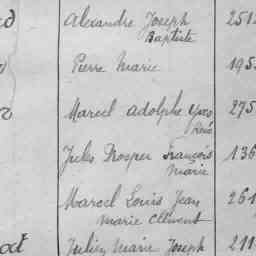 Alexandre Joseph 251
Baptiste
Pierre Marie 195
Marcel adolphe Yves 275
René
Jules Prosper François 136
Marie
Marcel Louis Jean 261
Marie Clément
Julien Marie Joseph 211